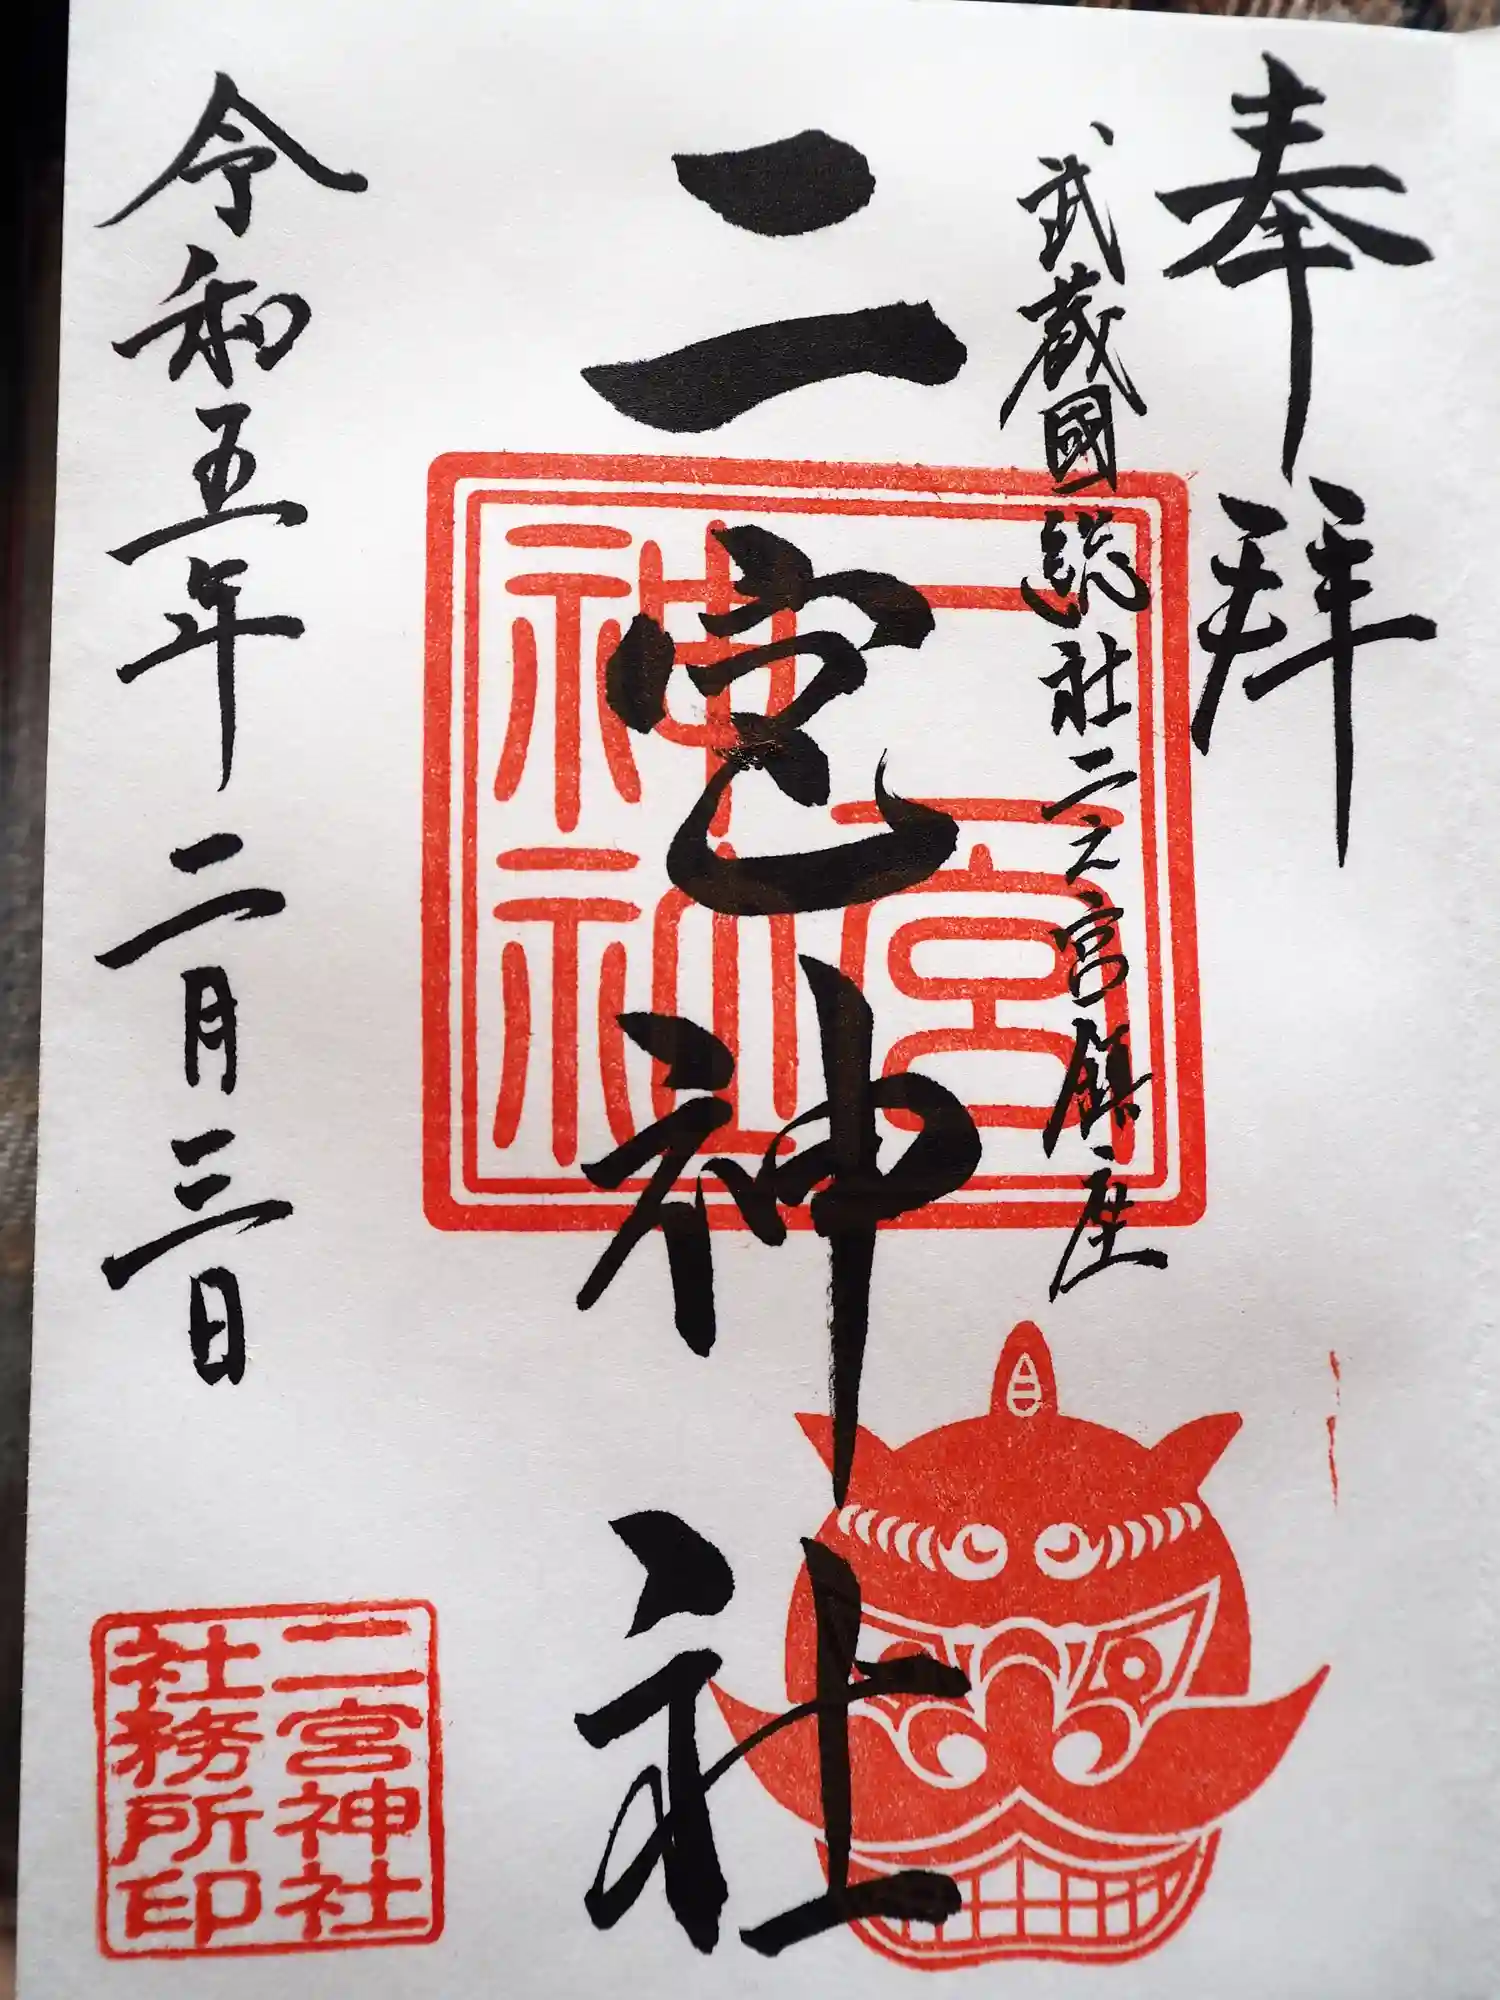 奉拝
武蔵國総社二之宮鎮座
二宮神社
二宮
神社
令和五年二月三日
二宮神社
社務所印